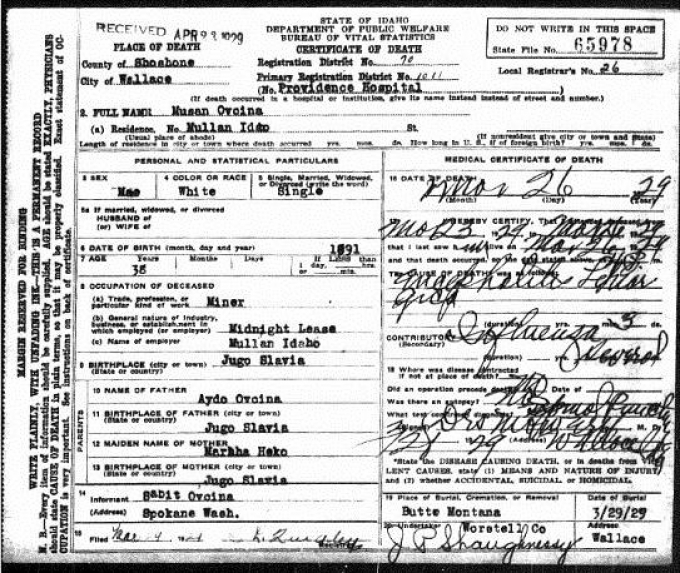 RECEIVED APR 23 1929
STATE OF IDAHO
DEPARTMENT OF PUBLIC WELFARE
BUREAU OF VITAL STATISTICS
CERTIFICATE OF DEATH
DO NOT WRITE IN THIS SPACE
State File No. 65978
Local Registrar's No. 26
PLACE OF DEATH
County of Shoshone
City of Wallace
Registration District No. 70
Primary Registration District No. 1011
(No. Providence Hospital)
(If death occurred in a hospital or institution, give its name instead instead of street and number.)
2. FULL NAME: Musan Ovcina
(a) Residence, No. Mullan Idáo St.
(Usual place of abode) (If nonresident give city or town and State)
Length of residence in city or town where death occurred yrs. mos. ds. How long in U. S., if of foreign birth? yrs. mos. ds.
PERSONAL AND STATISTICAL PARTICULARS
3 SEX Mae
4 COLOR OR RACE White
5 Single, Married, Widowed, or Divorced (write the word) Single
5a If married, widowed, or divorced
HUSBAND of
(or) WIFE of
6 DATE OF BIRTH (month, day and year) 1891
7 AGE Years 38 Months Days If LESS than 1 day, hrs. or min.
8 OCCUPATION OF DECEASED
(a) Trade, profession, or particular kind of work Miner
(b) General nature of Industry, business, or establishment in which employed (or employer) Midnight Lease
(c) Name of employer Mullan Idaho
9 BIRTHPLACE (city or town) Jugo Slavia
(State or country)
PARENTS
10 NAME OF FATHER Aydo Ovcina
11 BIRTHPLACE OF FATHER (city or town) Jugo Slavia
(State or country)
12 MAIDEN NAME OF MOTHER Markha Heko
13 BIRTHPLACE OF MOTHER (city or town) Jugo Slavia
(State or country)
14 Informant Sabit Ovcina
(Address) Spokane Wash.
15 Filed
MEDICAL CERTIFICATE OF DEATH
16 DATE OF DEATH Mar 26 29
(Month) (Day) (Year)
17 I HEREBY CERTIFY, That I attended deceased from
that I last saw h alive on Mar 26
and that death occurred, on the date stated above, at
The CAUSE OF DEATH was as follows:
(duration) yrs. mos. 3 ds.
CONTRIBUTORY Influenza
(Secondary)
(duration) yrs.
18 Where was disease contracted
if not at place of death?
Did an operation precede death? No Date of
Was there an autopsy? No
What test confirmed diagnosis?
(Signed) M. D.
29 (Address) Wallace
*State the DISEASE CAUSING DEATH, or in deaths from VIOLENT CAUSES, state (1) MEANS AND NATURE OF INJURY; and (2) whether ACCIDENTAL, SUICIDAL, or HOMICIDAL.
19 Place of Burial, Cremation, or Removal Butte Montana
Date of Burial 3/29/29
20 Undertaker Worstell Co
J P Shaughnessy
Address Wallace
MARGIN RESERVED FOR BINDING
WRITE PLAINLY, WITH UNFADING INK—THIS IS A PERMANENT RECORD
N. B.—Every item of information should be carefully supplied. AGE should be stated EXACTLY, PHYSICIANS
should state CAUSE OF DEATH in plain terms, so that it may be properly classified. Exact statement of OCCUPATION is very important. See instructions on back of certificate.